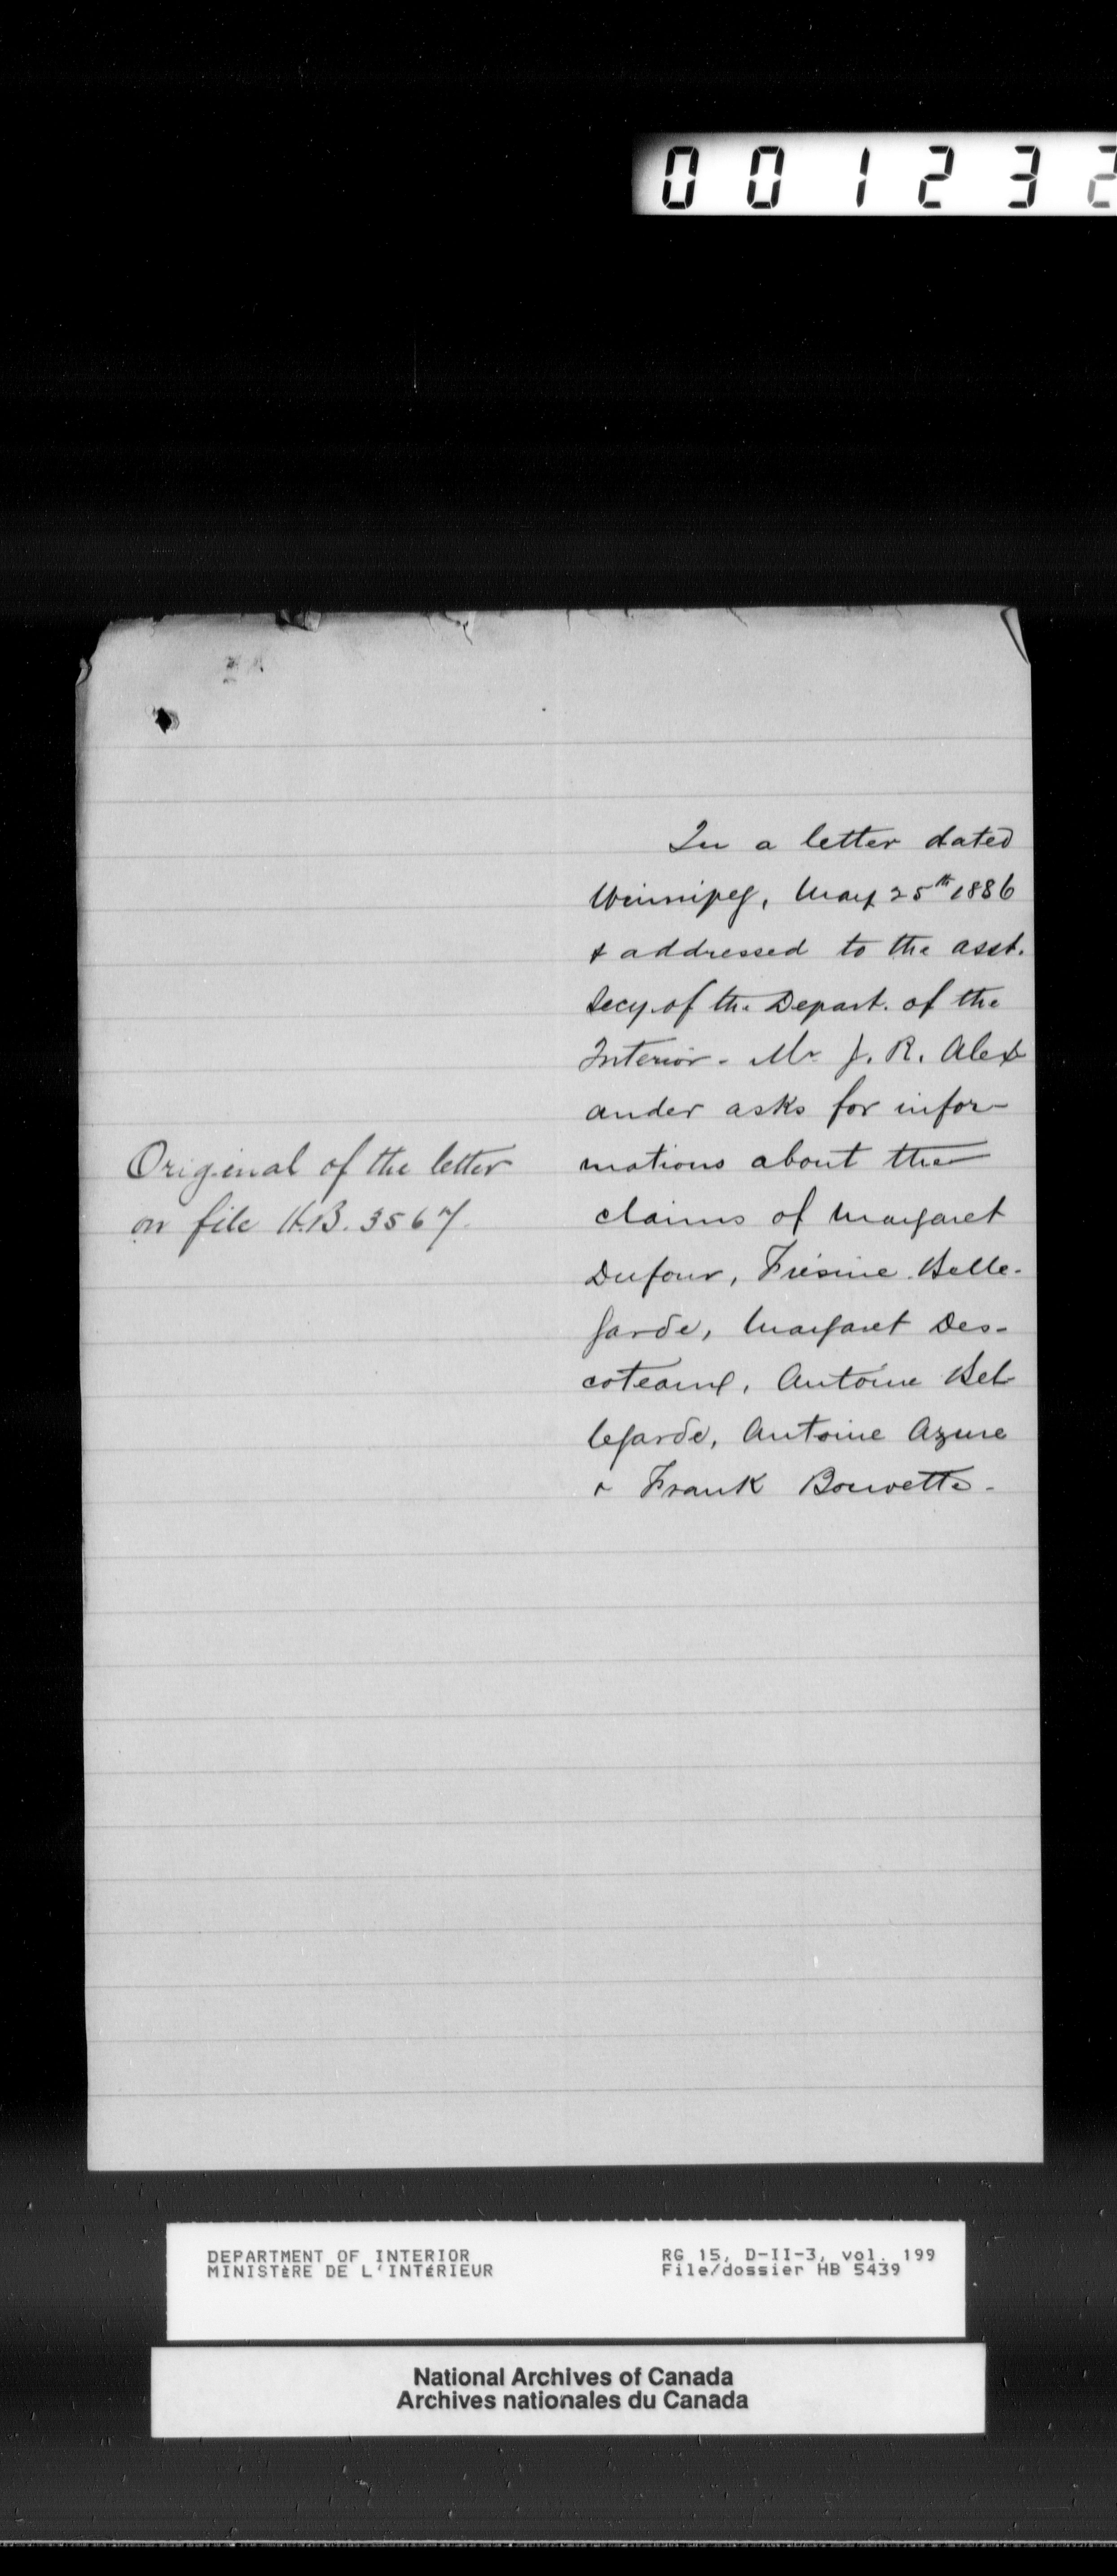 001232
In a letter dated
Winnipeg, May 25th 1886
& addressed to the asst.
Secy. of the Depart. of the
Interior - Mr J. R. Alex
ander asks for infor-
mations about the
claims of Margaret
Dufour, Belle-
garde, Margaret Des-
coteaux, Antoine Bel-
legarde, Antoine Azure
& Frank Bouvette.
Original of the letter
on file H.B. 3567.
DEPARTMENT OF INTERIOR
MINISTÈRE DE L'INTÉRIEUR
RG 15, D-II-3, vol. 199
File/dossier HB 5439
National Archives of Canada
Archives nationales du Canada